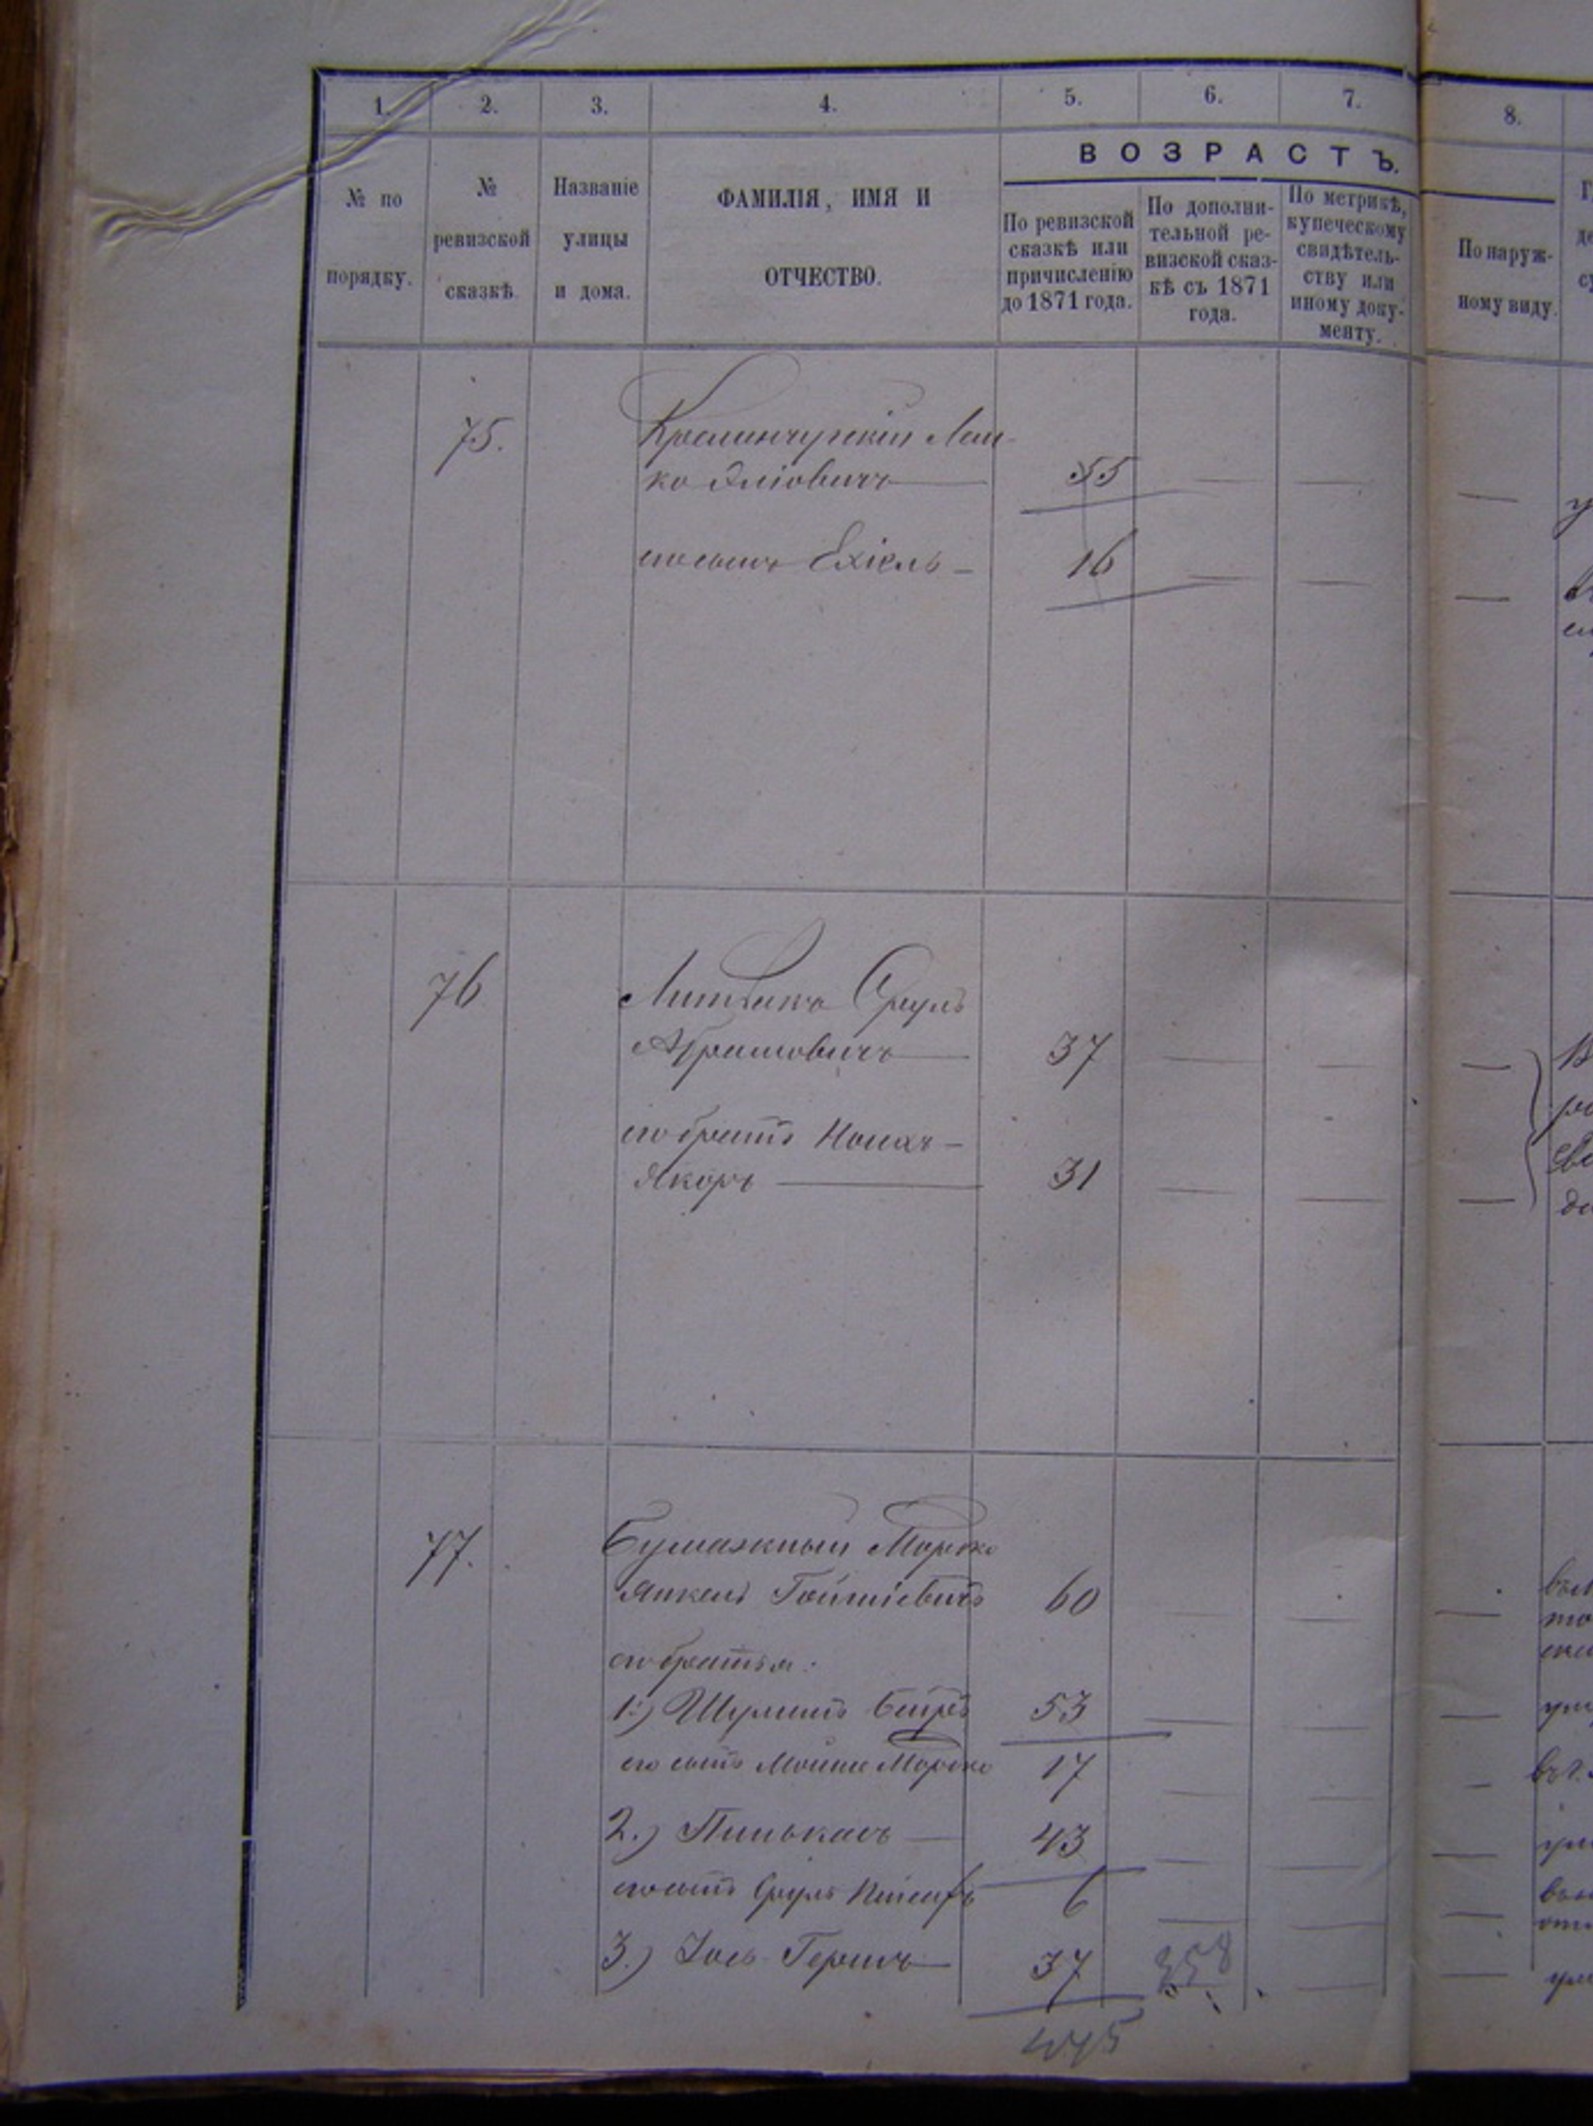 1. 2. 3. 4. 5. 6. 7. 8.
ВОЗРАСТЪ.
№ по
порядку.
№
ревизской
сказкѣ
Названіе
улицы
и дома.
ФАМИЛІЯ, ИМЯ И
ОТЧЕСТВО.
По ревизской
сказкѣ или
причисленію
до 1871 года.
По дополни-
тельной ре-
визской сказ-
кѣ съ 1871
года.
По метрикѣ,
купеческому
свидѣтель-
ству или
иному доку-
менту.
По наруж-
ному виду.
75. Кременчугскій Леи-
ко Эліовичъ 55
его сынъ Ехіель 16
76 Литвакъ Сруль
Абрамовичъ 37
его братъ Ноихъ-
31
77. Бумажный Мордко
Янкель 60
его братья:
1.) Шулимъ Беръ 53
его сынъ Мошко Мордко 17
2.) Пинькасъ 43
его сынъ Сруль 6
3.) Іось Гершъ 37 358